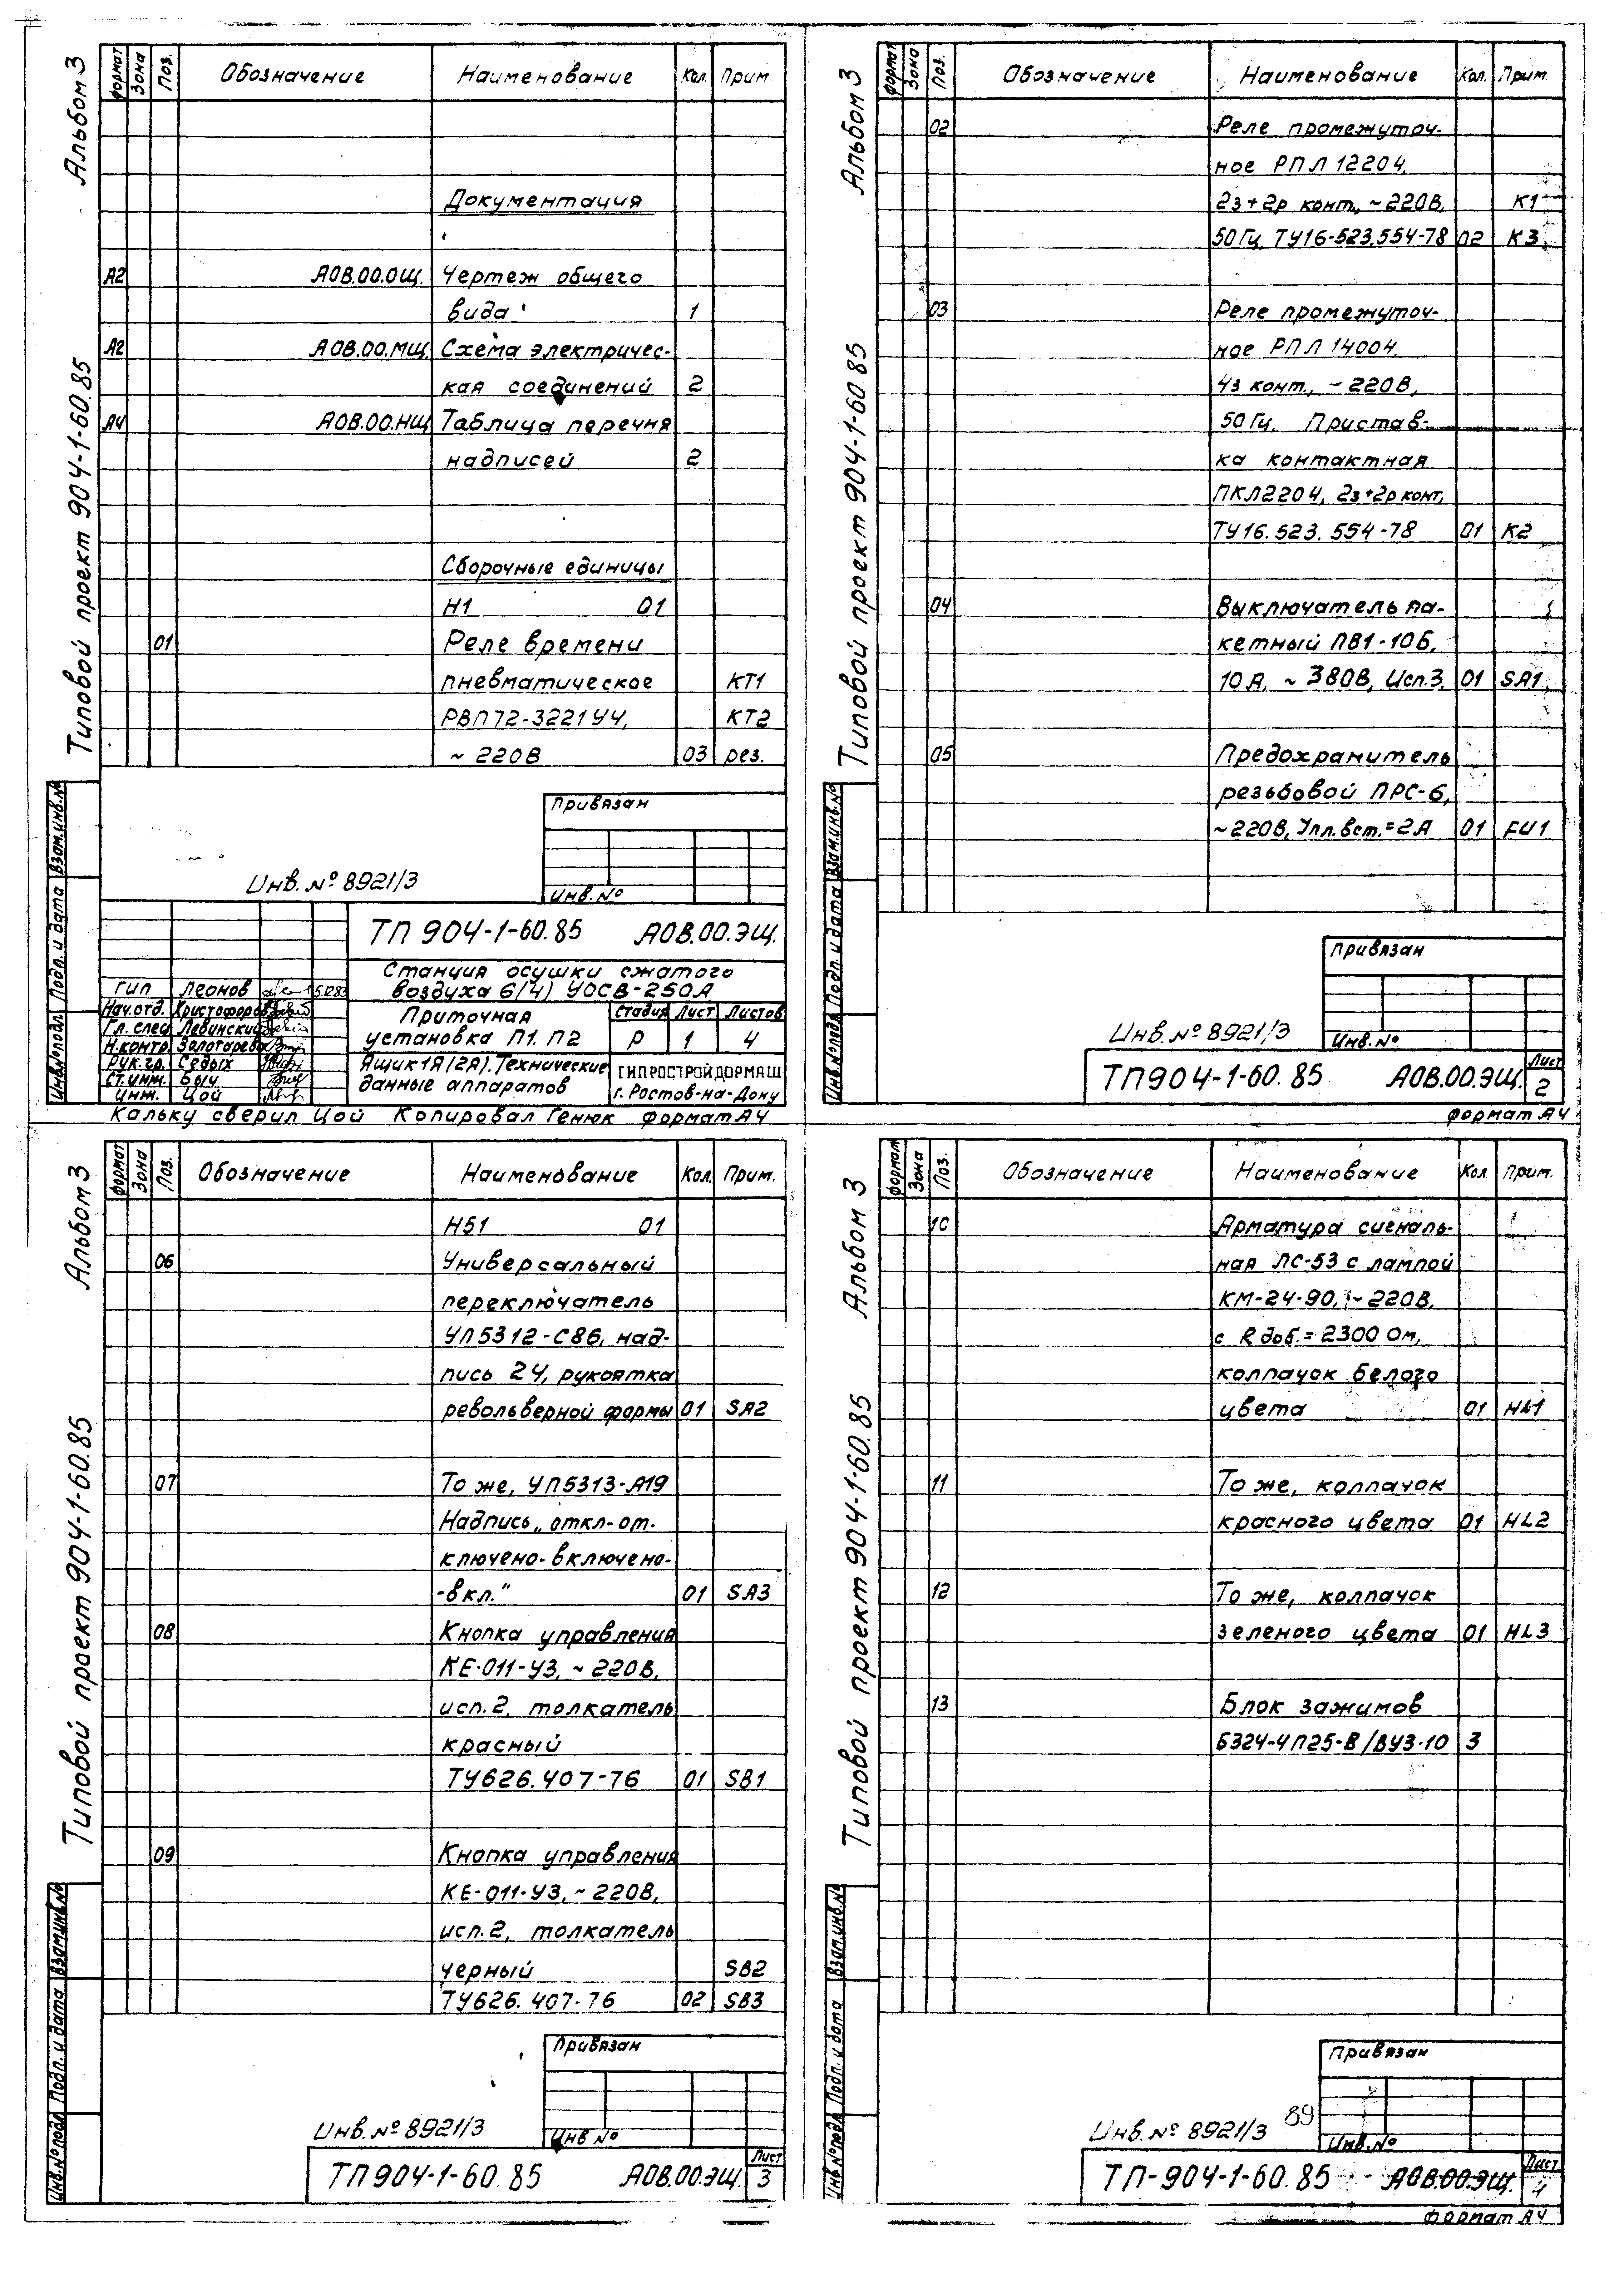 Альбом 3
Типовой проект 904-1-60.85
формат Зона Поз. Обозначение Наименование Кол. Прим.
Документация
А2 АОВ.00.ОЩ. Чертеж общего
вида 1
А2 АОВ.00.МЩ. Схема электричес-
кая соединений 2
А4 АОВ.00.НЩ Таблица перечня
надписей 2
Сборочные единицы
Н1 01
01 Реле времени
пневматическое КТ1
РВП72-3221У4, КТ2
~ 220В 03 рез.
Привязан
Инв.№
Инв.№ 8921/3
Инв.№подл. Подл. и дата Взам.инв.№
ТП 904-1-60.85 АОВ.00.ЭЩ.
Станция осушки сжатого
воздуха 6(4) УОСВ-250А
ГИП Леонов 5.12.83
Нач.отд. Христофоров
Гл. спец Левинский
Н.контр. Золотарева
Рук.гр. Седых
Ст.инж. Быч
Инж. Цой
Приточная
установка П1, П2
Стадия Лист Листов
Р 1 4
Ящик 1Я(2Я). Технические
данные аппаратов
ГИПРОСТРОЙДОРМАШ
г. Ростов-на-Дону
Кальку сверил Цой Копировал Генюк формат А4
Альбом 3
Типовой проект 904-1-60.85
формат Зона Поз. Обозначение Наименование Кол. Прим.
02 Реле промежуточ-
ное РПЛ 12204,
2з+2р конт., ~220В, К1
50 Гц, ТУ16-523.554-78 02 К3
03 Реле промежуточ-
ное РПЛ 14004,
4з конт., ~220В,
50 Гц. Пристав-
ка контактная
ПКЛ2204, 2з+2р конт,
ТУ16.523.554-78 01 К2
04 Выключатель па-
кетный ПВ1-10Б,
10А, ~ 380В, Исп.3, 01 SA1
05 Предохранитель
резьбовой ПРС-6,
~220В, Упл.вст.=2А 01 FU1
Привязан
Инв.№
Инв.№ 8921/3
Инв.№подл. Подл. и дата Взам.инв.№
ТП904-1-60.85 АОВ.00.ЭЩ. Лист
2
формат А4
Альбом 3
Типовой проект 904-1-60.85
формат Зона Поз. Обозначение Наименование Кол. Прим.
Н51 01
06 Универсальный
переключатель
УП5312-С86, над-
пись 24, рукоятка
револьверной формы 01 SA2
07 То же, УП5313-А19
Надпись „откл-от-
ключено-включено-
-вкл." 01 SA3
08 Кнопка управления
КЕ-011-У3, ~220В,
исп.2, толкатель
красный
ТУ626.407-76 01 SB1
09 Кнопка управления
КЕ-011-У3, ~220В,
исп.2, толкатель
черный SB2
ТУ626.407-76 02 SB3
Привязан
Инв №
Инв.№ 8921/3
Инв.№подл Подл. и дата Взам.инв.№
ТП904-1-60.85 АОВ.00.ЭЩ. Лист
3
Альбом 3
Типовой проект 904-1-60.85
формат Зона Поз. Обозначение Наименование Кол. Прим.
10 Арматура сигналь-
ная ЛС-53 с лампой
КМ-24-90, ~220В,
с R доб.=2300 Ом,
колпачок белого
цвета 01 HL1
11 То же, колпачок
красного цвета 01 HL2
12 То же, колпачок
зеленого цвета 01 HL3
13 Блок зажимов
БЗ24-4П25-В/ВУ3-10 3
Привязан
Инв.№
Инв.№ 8921/3 89
Инв.№подл. Подл. и дата Взам.инв.№
ТП-904-1-60.85 АОВ.00.ЭЩ. Лист
4
формат А4